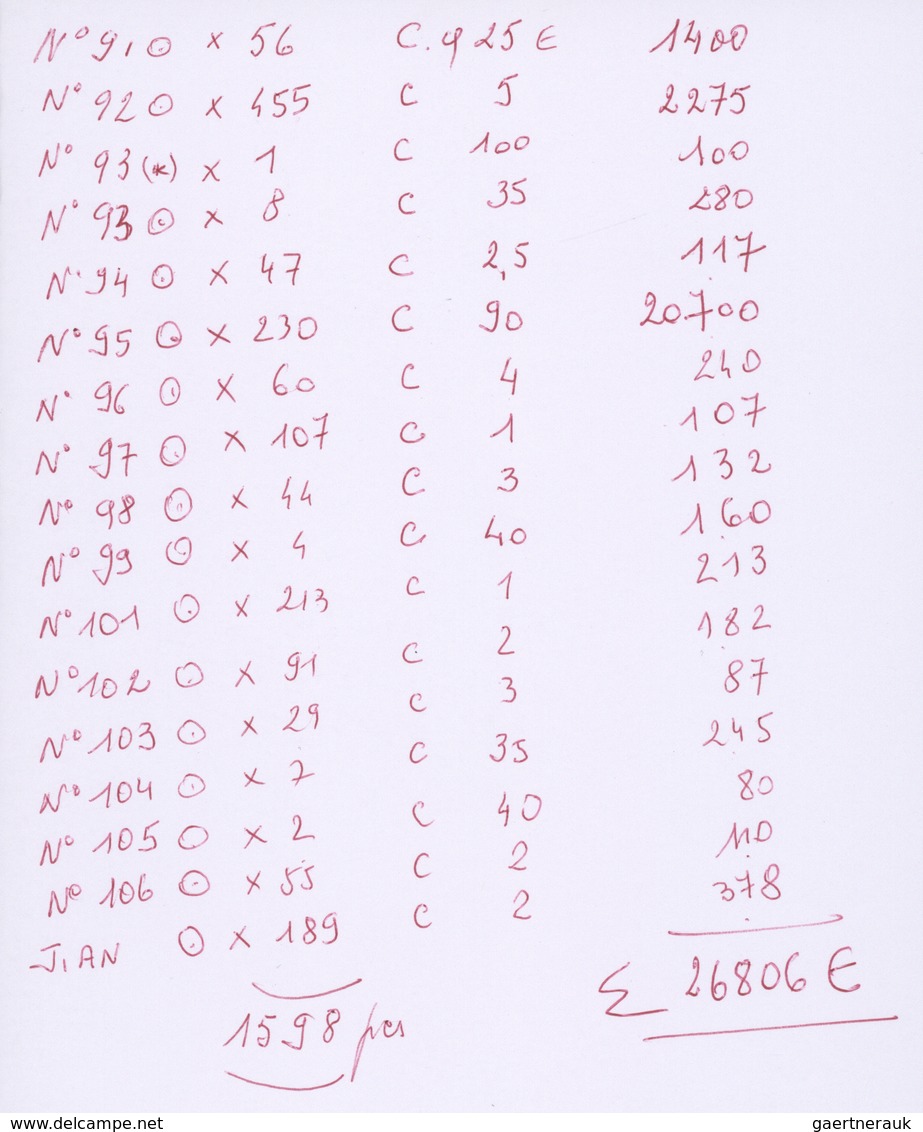 N° 91 ⊙ x 56 C. φ 25 € 1400
N° 92 ⊙ x 455 C 5 2275
N° 93 (*) x 1 C 100 100
N° 93 ⊙ x 8 C 35 280
N° 94 ⊙ x 47 C 2,5 117
N° 95 ⊙ x 230 C 90 20.700
N° 96 ⊙ x 60 C 4 240
N° 97 ⊙ x 107 C 1 107
N° 98 ⊙ x 44 C 3 132
N° 99 ⊙ x 4 C 40 160
N° 101 ⊙ x 213 C 1 213
N° 102 ⊙ x 91 C 2 182
N° 103 ⊙ x 29 C 3 87
N° 104 ⊙ x 7 C 35 245
N° 105 ⊙ x 2 C 40 80
N° 106 ⊙ x 55 C 2 110
J, AN ⊙ x 189 C 2 378
1598 pcs Σ 26806 €
www.delcampe.net gaertnerauk